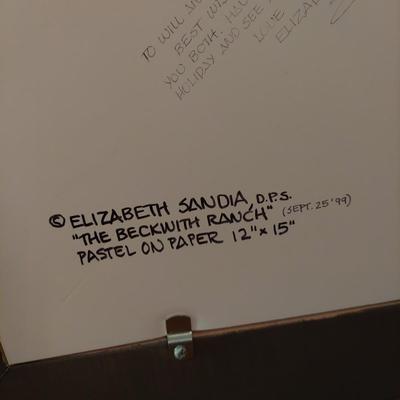 TO WILL
BEST
YOU BOTH.
HOLIDAY AND SEE
LOVE
© ELIZABETH SANDIA, D.P.S.
"THE BECKWITH RANCH" (SEPT. 25 '99)
PASTEL ON PAPER 12" x 15"